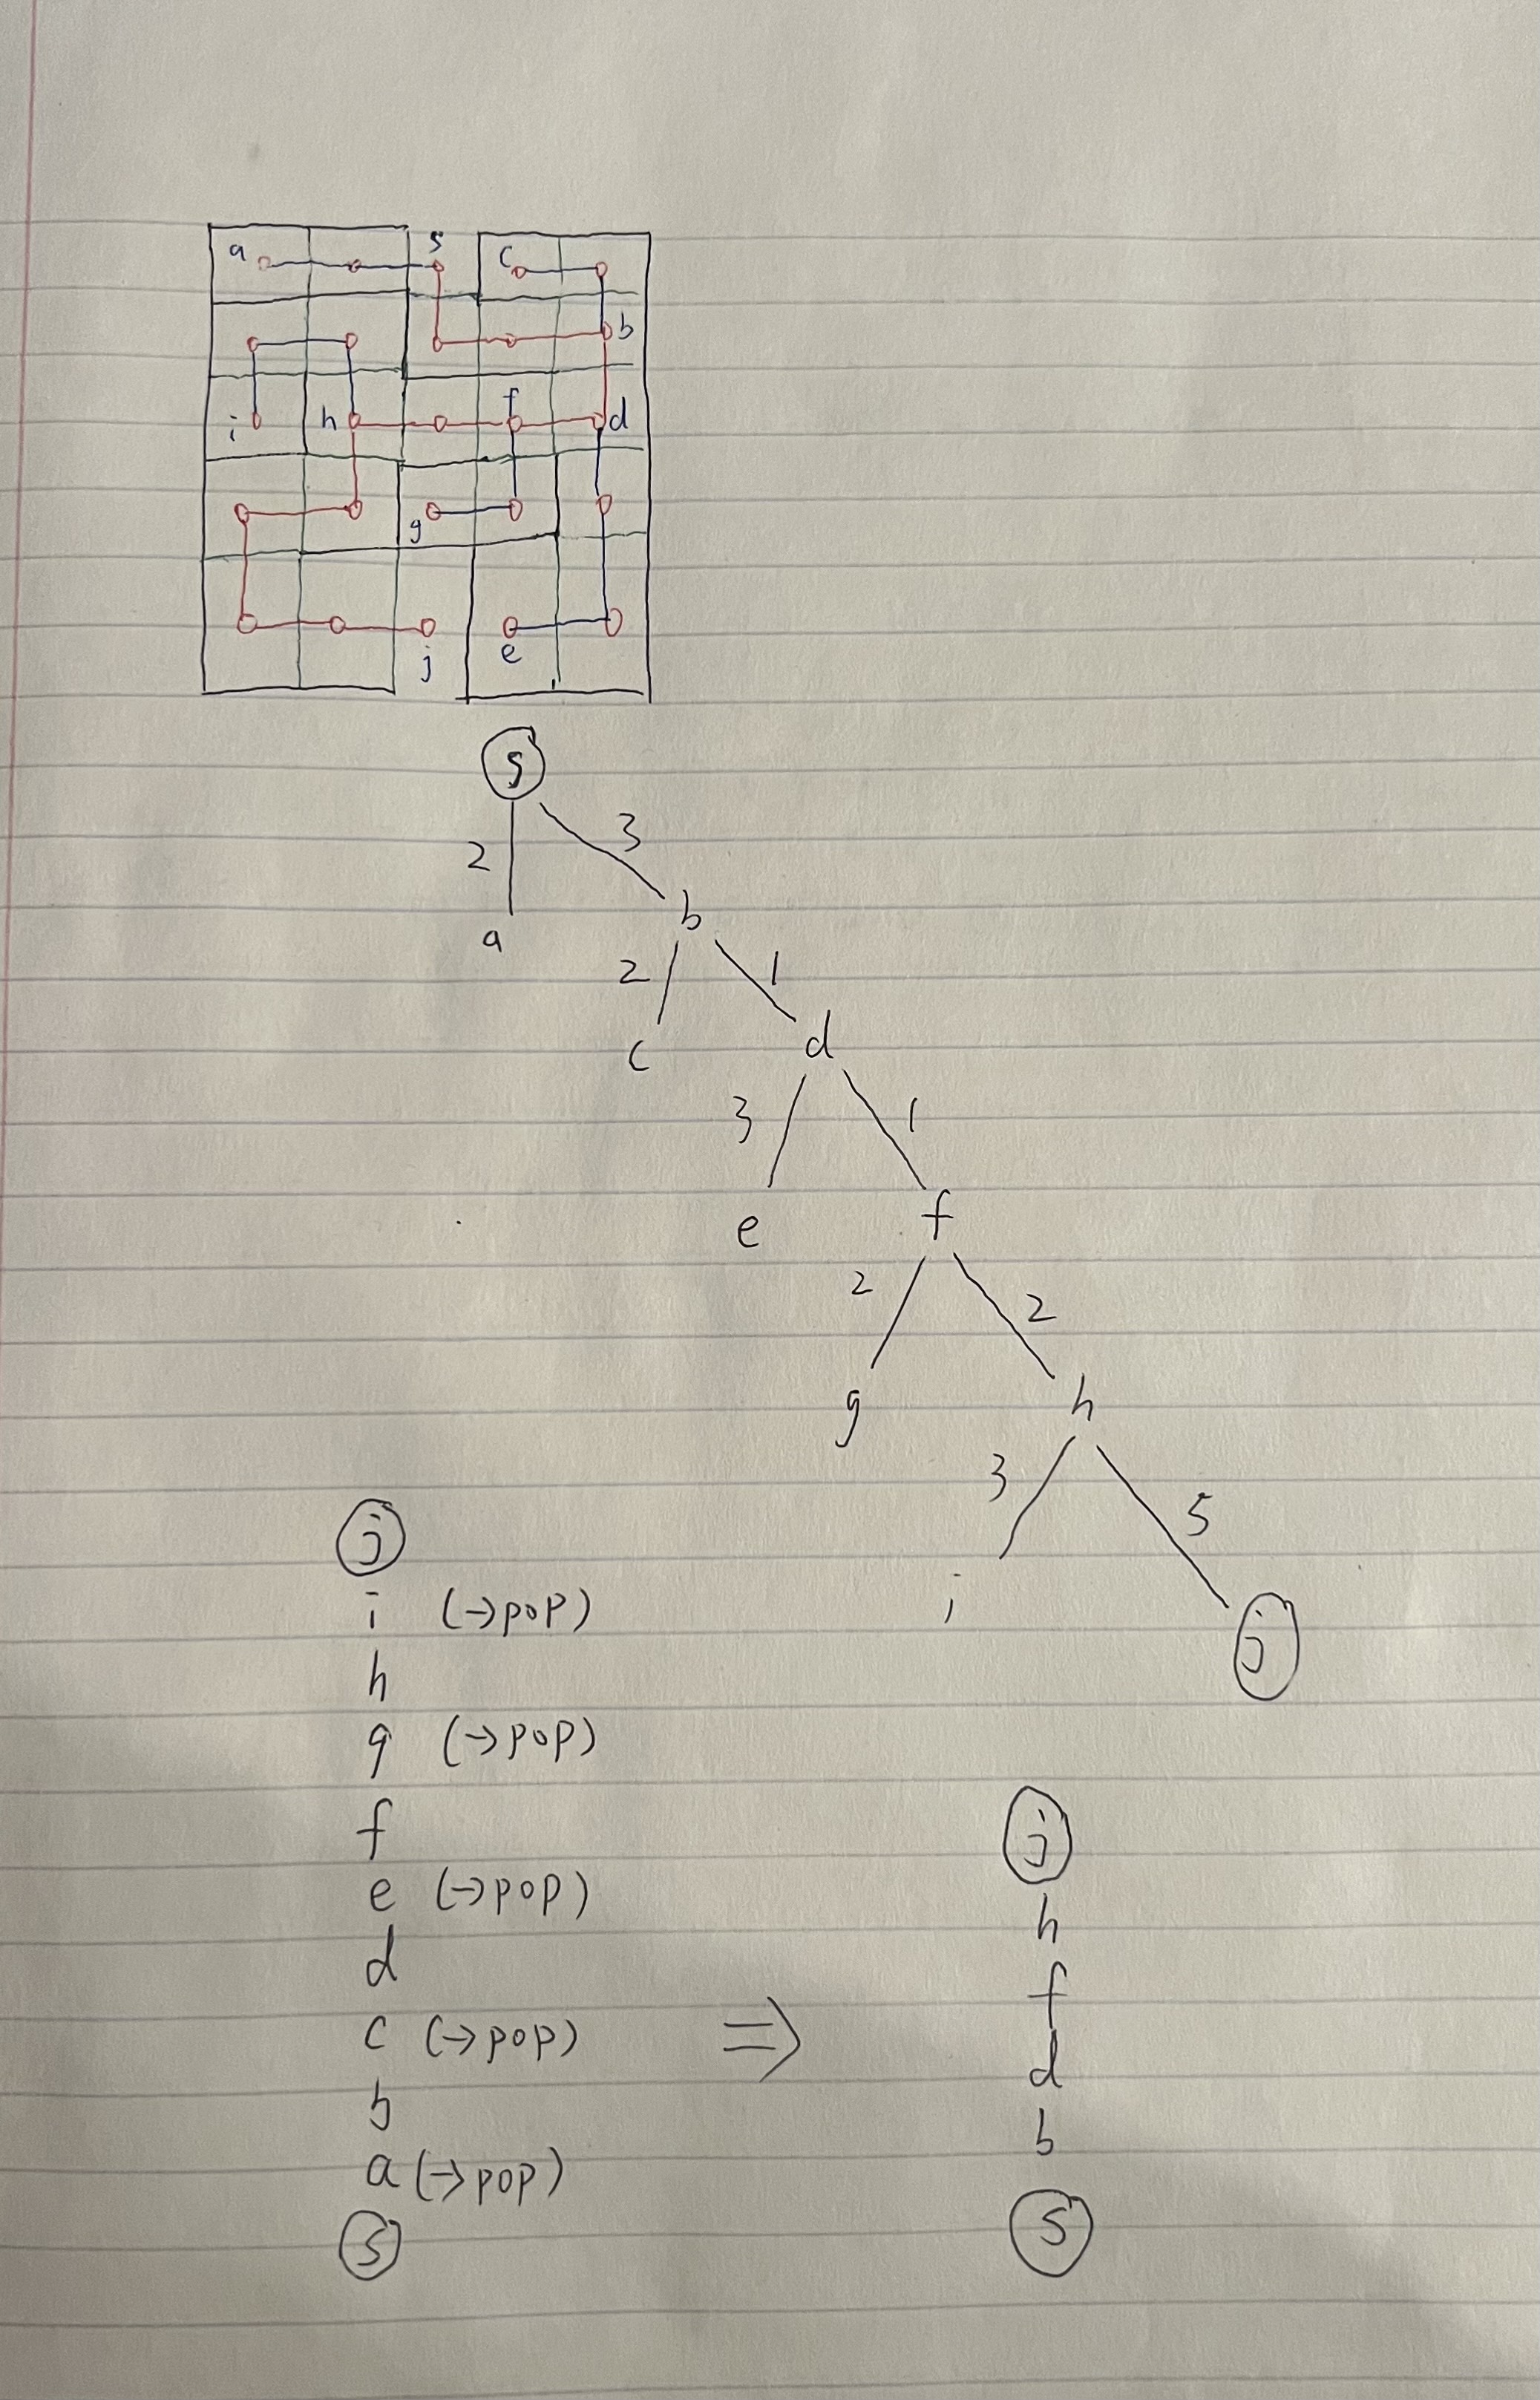 a s c
b
i h f d
g
j e
s
2 3
a b
2 1
c d
3 1
e f
2 2
g h
3 5
i j
j
i (→pop)
h
g (→pop)
f
e (→pop)
d
c (→pop)
b
a (→pop)
s
⇒
j
h
f
d
b
s